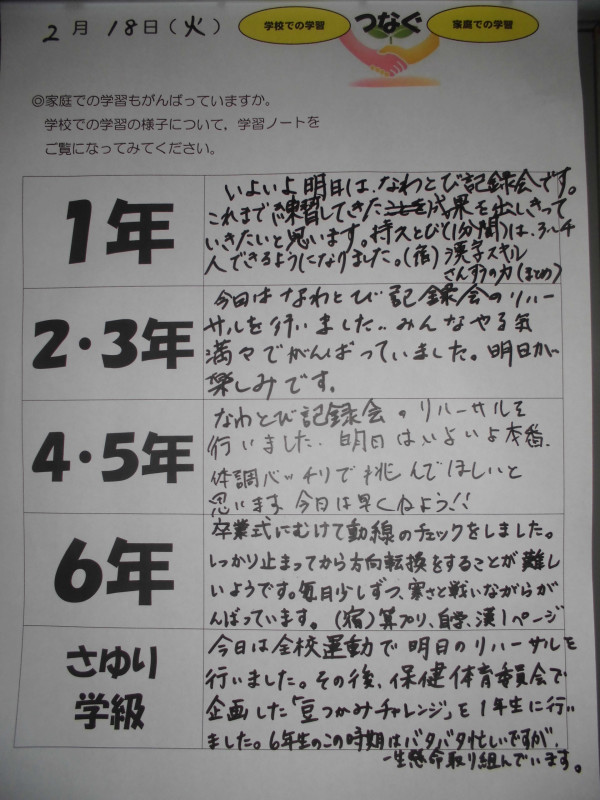 2月18日(火)
学校での学習
つなぐ
家庭での学習
◎家庭での学習もがんばっていますか。
学校での学習の様子について，学習ノートを
ご覧になってみてください。
1年
いよいよ明日は、なわとび記録会です。
これまで練習してきた成果を出しきって
いきたいと思います。持久とび(1分間)は、
人できるようになりました。(宿)漢字スキル
さんすうの力(まとめ)
2・3年
今日はなわとび記録会のリハー
サルを行いました。みんなやる気
満々でがんばっていました。明日が
楽しみです。
4・5年
なわとび記録会のリハーサルを
行いました。明日はいよいよ本番。
体調バッチリで挑んでほしいと
思います。今日は早くねよう!!
6年
卒業式にむけて動線のチェックをしました。
しっかり止まってから方向転換をすることが難し
いようです。毎日少しずつ、寒さと戦いながらが
んばっています。(宿)算プリ、自学、漢1ページ
さゆり
学級
今日は全校運動で明日のリハーサルを
行いました。その後、保健体育委員会で
企画した「豆つかみチャレンジ」を1年生に行い
ました。6年生のこの時期はバタバタ忙しいですが、
一生懸命取り組んでいます。